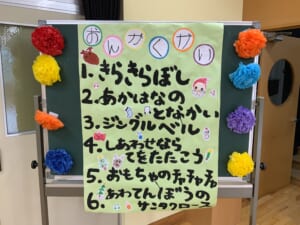 おんがくかい
1. きらきらぼし
2. あかはなの
となかい
3. ジングルベル
4. しあわせなら
てをたたこう
5. おもちゃのチャチャチャ
6. あわてんぼうの
サンタクロース